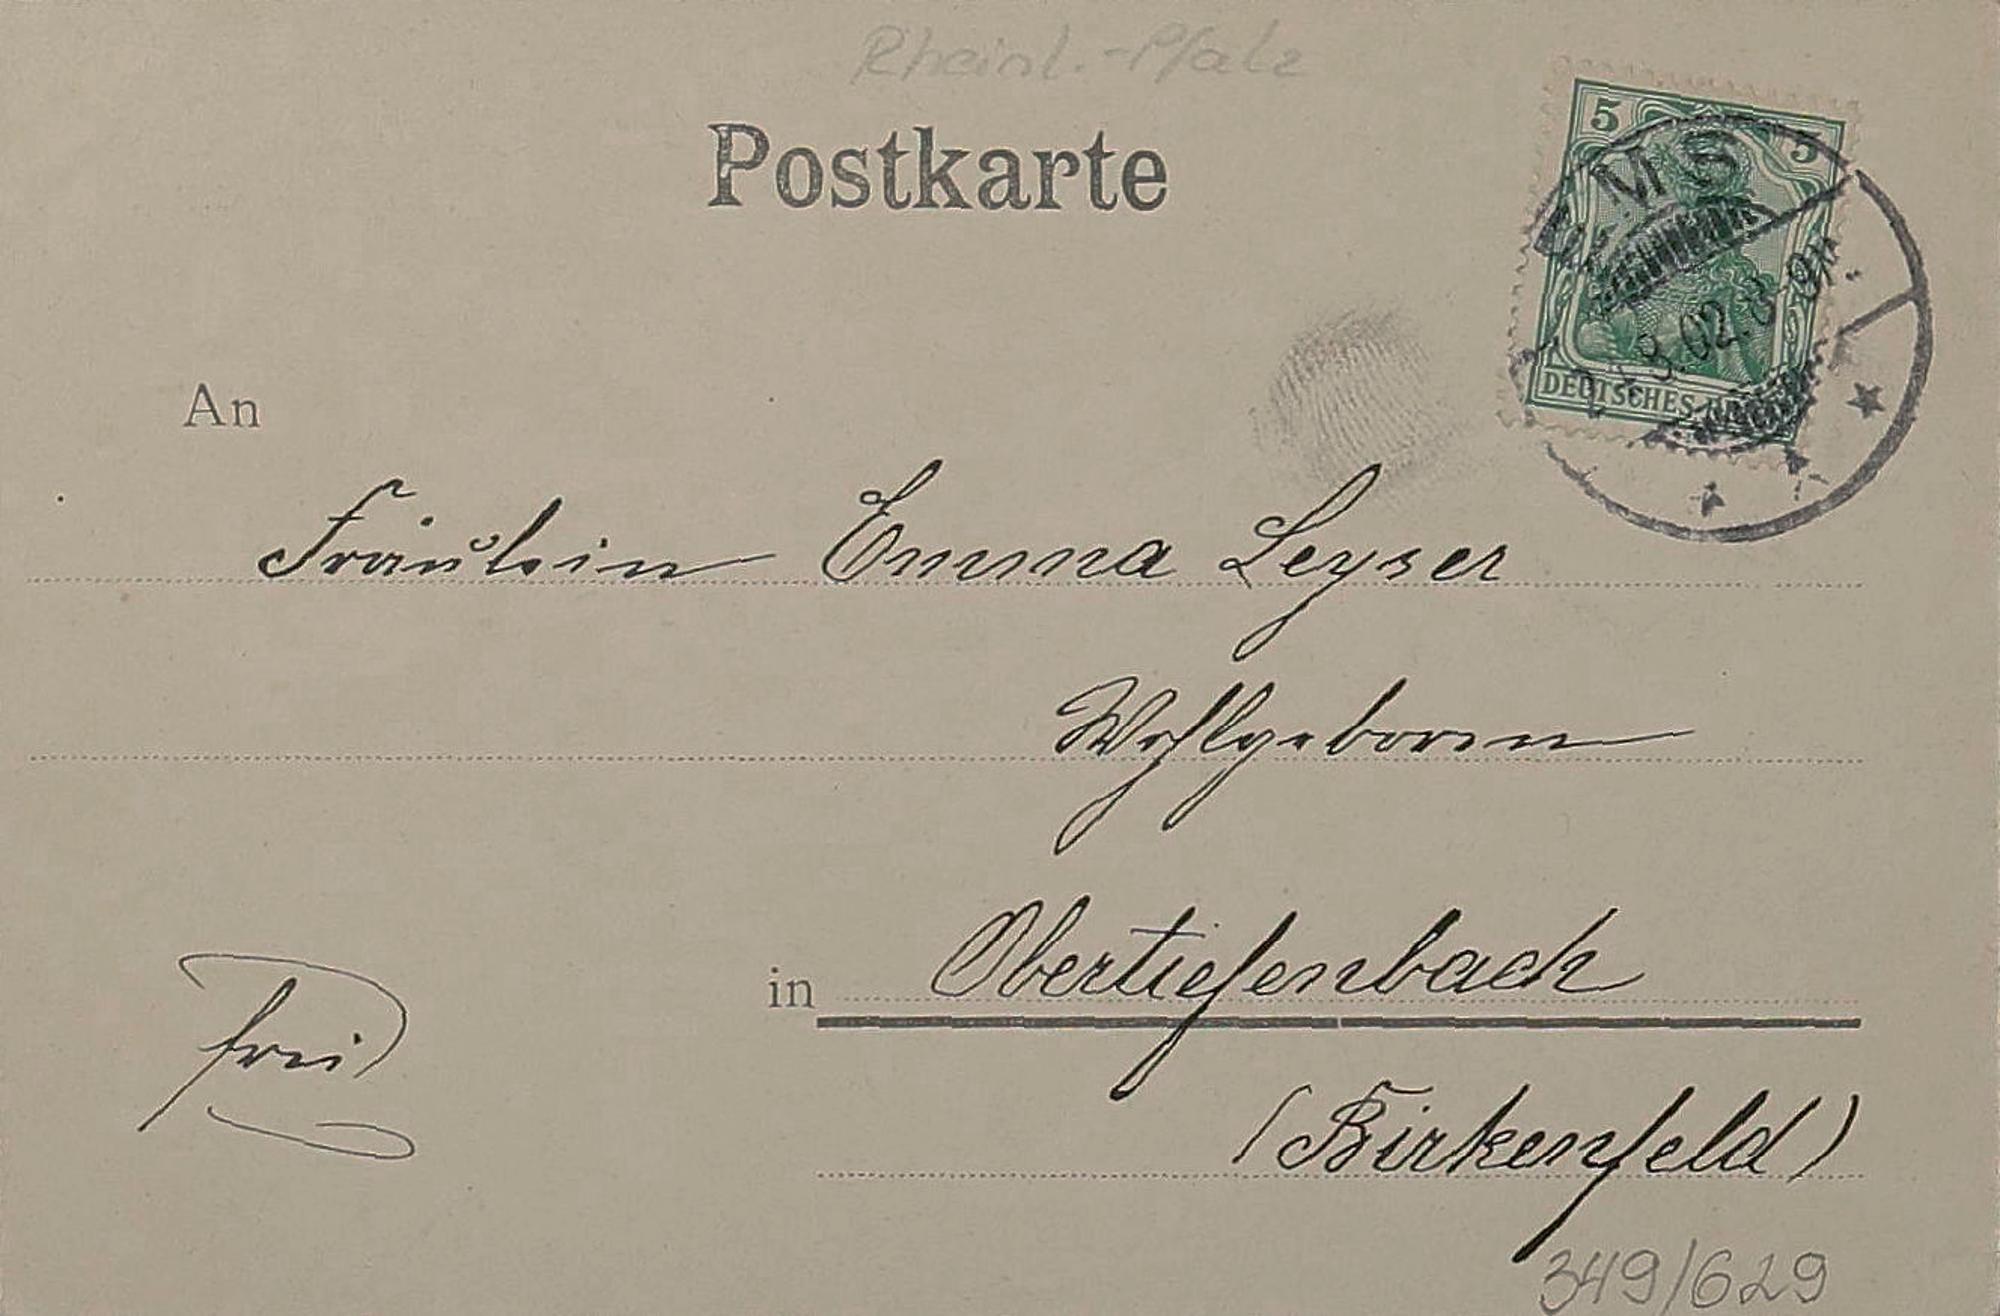 Rheinl.-Pfalz
Postkarte
5 5
EMS
3.02.8-9N.
DEUTSCHES
An
Fräulein Emma Leyser
Wohlgeboren
in Obertiefenbach
frei
(Birkenfeld)
349/629